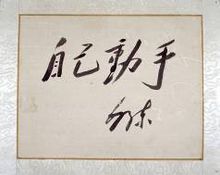 自己動手